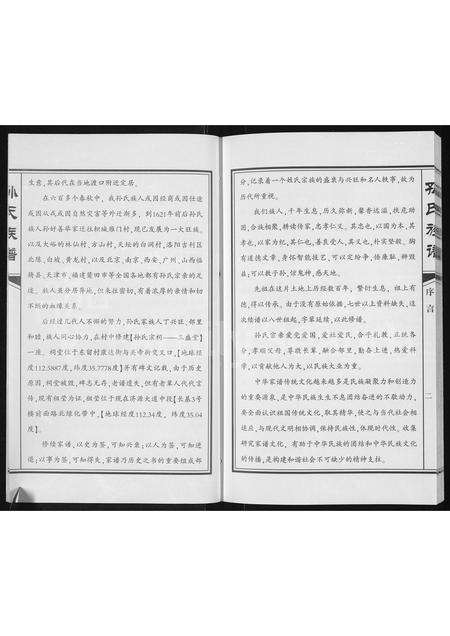 孙氏族谱
生愈,其后代在当地渡口附近定居。
在六百多个春秋中,我孙氏族人或因经商或因任途
或因从戎或因自然灾害等外迁渐多,到1621年前后孙氏
族人孙好善举家迁往积城雁门村,现已发展为一大旺族。
以及大峪的林仙村、方山村、天坛的白涧村、洛阳吉利区
的陈、白坡、黄龙村,以及北京、南京、西安、广州、山西临
猗县、天津市、福建莆田市等全国各地都有孙氏宗亲的足
迹。族人虽分居异地,但未扯宗切,有着浓厚的亲情和切
不断的血缘关系。
后经过几代人不懈的努力,孙氏家族人丁兴旺,邻里
和睦,族人同心协力,在村中修建【孙氏宗祠——三盛堂】
一座,祠堂位于东留村康达街与关帝街夹叉口【地球经
度112.5867度,纬度35.7778度】并有碑文记载,由于历史原
因,祠堂被毁,碑志无存,家谱遗失,但有老辈人代代言
传,现有祖茔为证,祖茔位于现在济源大道中段【长泰3号
楼前曲路北绿化带中,【地球经度112.34度,纬度35.04
度】。
修续家谱,以史为鉴,可知兴衰;以人为鉴,可知进
退;以事为鉴,可知得失,家谱乃历史之书的重要组成部
分,记录着一个姓氏宗族的盛衰与兴旺和名人轶事,故为
历代所重视。
我们族人,千年生息,历久弥新,馨香远溢,扶危劝
困,合族相聚,耕读传家,忠孝仁义。其忠也,以国为本,其
孝也,以家为纪,其仁也,善良爱人,其义也,朴实坚毅。胸
有道德文章,身怀智勇技艺,可以定纷争,倍康脉,辩毁
喜;可以教子孙,信鬼神,感天地。
先祖在这片土地上历经数百年,繁衍生息,祖上有
德,得以传承。由于没有原始依据,七世以上资料缺失,这
次结谱以八世祖起,字辈延续,以此修谱。
孙氏宗亲爱党爱国,爱社爱民,合乎礼教、正统各
分,孝顺父母,尊朋长辈,融合邻里,勤奋上进,热爱科
学,以贡献他人为大,以民族大业为重。
中华家谱传统文化越来越多是民族凝聚力和创造力
的重要源泉,是中华民族生生不息团结奋进的不歇动力,
要全面认识祖国传统文化,取其精华,使之与当代社会相
适应,与现代文明相协调,保持民族性,体现时代性。收集
研究家谱文化,有助于中华民族的团结和中华民族文化
的传播,是构建和谐社会不可缺少的精神支柱。
孙氏族谱
序言
二